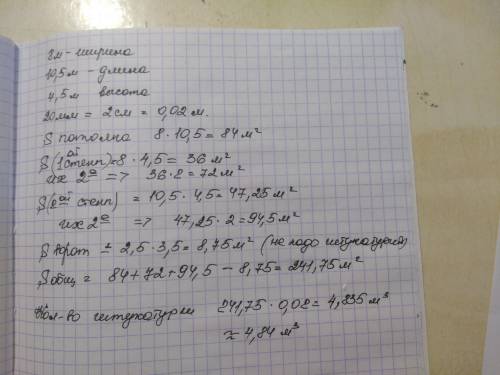 8м - ширина
10,5м - длина
4,5м высота
20мм = 2см = 0,02 м.
S потолка 8 · 10,5 = 84м²
S(1ой стены) = 8 · 4,5 = 36 м²
их 2е => 36 · 2 = 72 м²
S(2ой стены) = 10,5 · 4,5 = 47,25 м²
их 2е => 47,25 · 2 = 94,5 м²
S ворот = 2,5 · 3,5 = 8,75 м² (не надо штукатурить)
S общ = 84 + 72 + 94,5 - 8,75 = 241,75 м²
Кол-во штукатурки 241,75 · 0,02 = 4,835 м³
≈ 4,84 м³